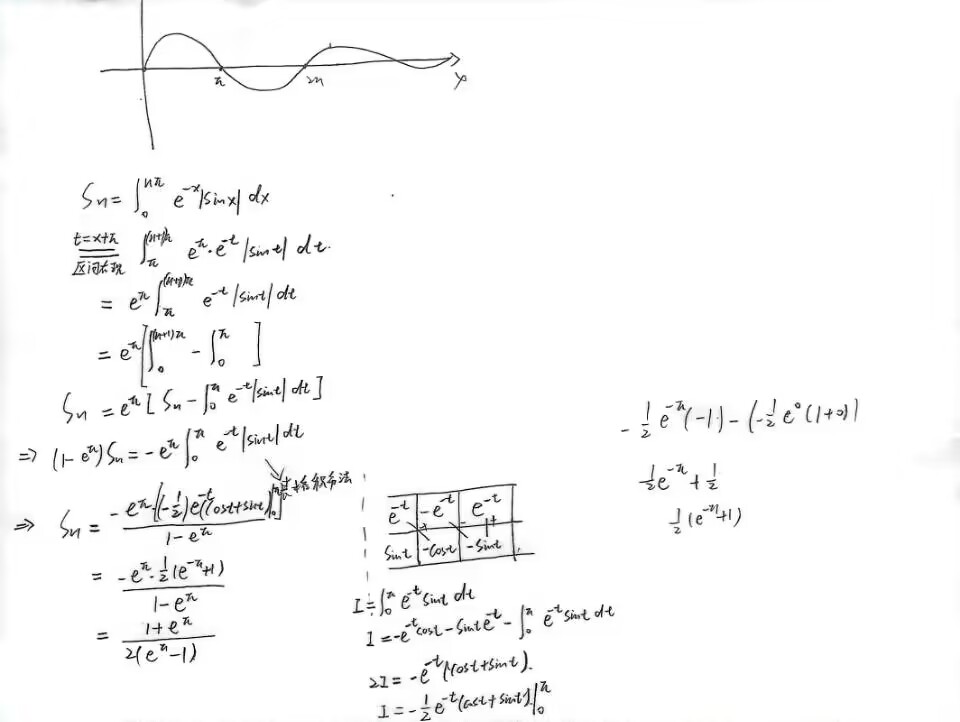 π 2π x
Sn = ∫₀^{nπ} e^{-x}|sinx| dx
t=x+π
区间表现 ∫_π^{(n+1)π} e^π · e^{-t} |sint| dt.
= e^π ∫_π^{(n+1)π} e^{-t} |sint| dt
= e^π [ ∫₀^{(n+1)π} - ∫₀^π ]
Sn = e^π [ Sn - ∫₀^π e^{-t}|sint| dt ]
⇒ (1-e^π)Sn = -e^π ∫₀^π e^{-t}|sint| dt
积分法
⇒ Sn = \frac{-e^π·[(-\frac{1}{2})e^{-t}(cost+sint)]₀^π}{1-e^π}
= \frac{-e^π·\frac{1}{2}(e^{-π}+1)}{1-e^π}
= \frac{1+e^π}{2(e^π-1)}
e^{-t} -e^{-t} e^{-t}
+ - +
sint -cost -sint
I = ∫₀^π e^{-t} sint dt
I = -e^{-t}cost - sint e^{-t} - ∫₀^π e^{-t} sint dt
2I = -e^{-t}(cost+sint).
I = -\frac{1}{2}e^{-t}(cost+sint)|₀^π
-\frac{1}{2}e^{-π}(-1) - (-\frac{1}{2}e^0(1+0))
\frac{1}{2}e^{-π} + \frac{1}{2}
\frac{1}{2}(e^{-π}+1)